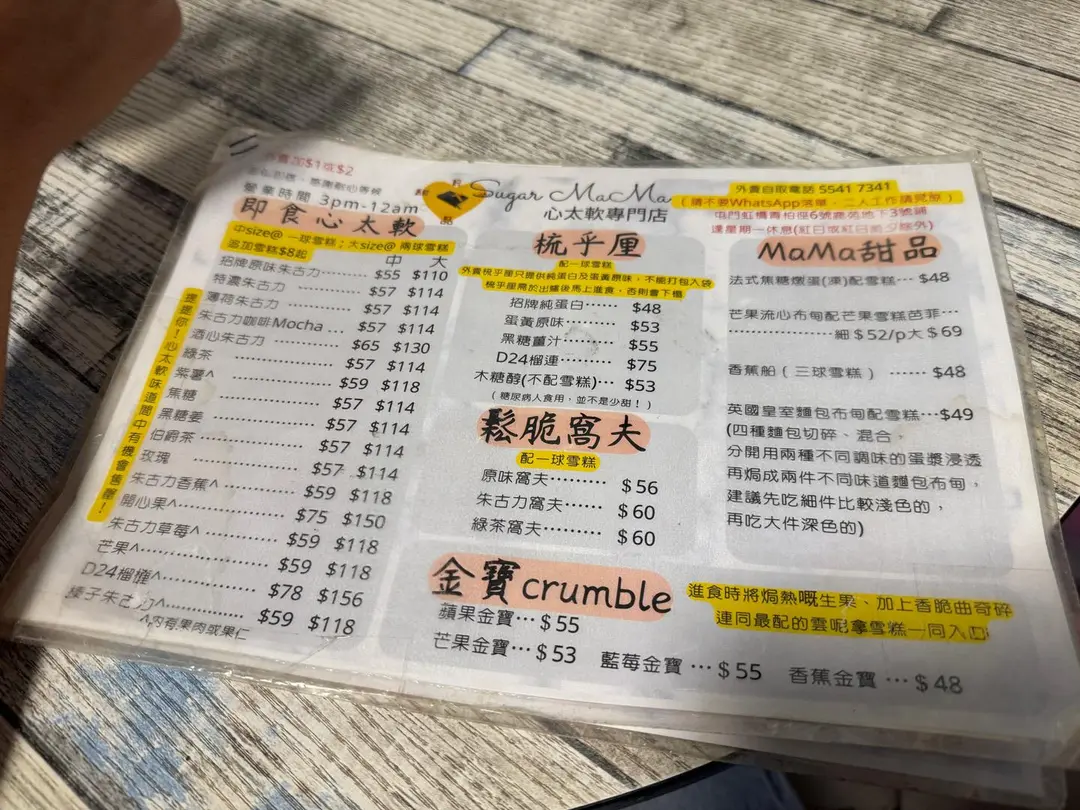 加$1或$2
營業時間 3pm-12am
Sugar MaMa
心太軟專門店
外賣自取電話 5541 7341
(請不要WhatsApp落單，二人工作請見諒)
屯門虹橋青柏徑6號鹿苑地下3號舖
逢星期一休息(紅日或紅日前夕除外)
即食心太軟
中size@ 一球雪糕；大size@ 兩球雪糕
追加雪糕$8起
中 大
招牌原味朱古力…… $55 $110
特濃朱古力 …… $57 $114
薄荷朱古力…… $57 $114
朱古力咖啡Mocha … $57 $114
酒心朱古力…… $65 $130
綠茶 …… $57 $114
紫薯^ …… $59 $118
焦糖 …… $57 $114
黑糖姜 …… $57 $114
伯爵茶 …… $57 $114
玫瑰 …… $57 $114
朱古力香蕉^ …… $59 $118
開心果^…… $75 $150
朱古力草莓^ …… $59 $118
芒果^…… $59 $118
D24榴槤^…… $78 $156
榛子朱古力^…… $59 $118
^內有果肉或果仁
提提你！心太軟味道間中有機會售罄！
梳乎厘
配一球雪糕
外賣梳乎厘只提供純蛋白及蛋黃原味，不能打包入袋
梳乎厘需於出爐後馬上進食，否則會下榻
招牌純蛋白…… $48
蛋黃原味……… $53
黑糖薑汁…… $55
D24榴連……… $75
木糖醇(不配雪糕)… $53
（糖尿病人食用，並不是少甜！）
鬆脆窩夫
配一球雪糕
原味窩夫……… $56
朱古力窩夫…… $60
綠茶窩夫……… $60
MaMa甜品
法式焦糖燉蛋(凍)配雪糕… $48
芒果流心布甸配芒果雪糕芭菲…
……………細＄52/p大＄69
香蕉船（三球雪糕） …… $48
英國皇室麵包布甸配雪糕…$49
(四種麵包切碎、混合，
分開用兩種不同調味的蛋漿浸透
再焗成兩件不同味道麵包布甸，
建議先吃細件比較淺色的，
再吃大件深色的)
金寶crumble
進食時將焗熱嘅生果、加上香脆曲奇碎
連同最配的雲呢拿雪糕一同入口
蘋果金寶…＄55
芒果金寶…＄53 藍莓金寶 …＄55 香蕉金寶 …＄48